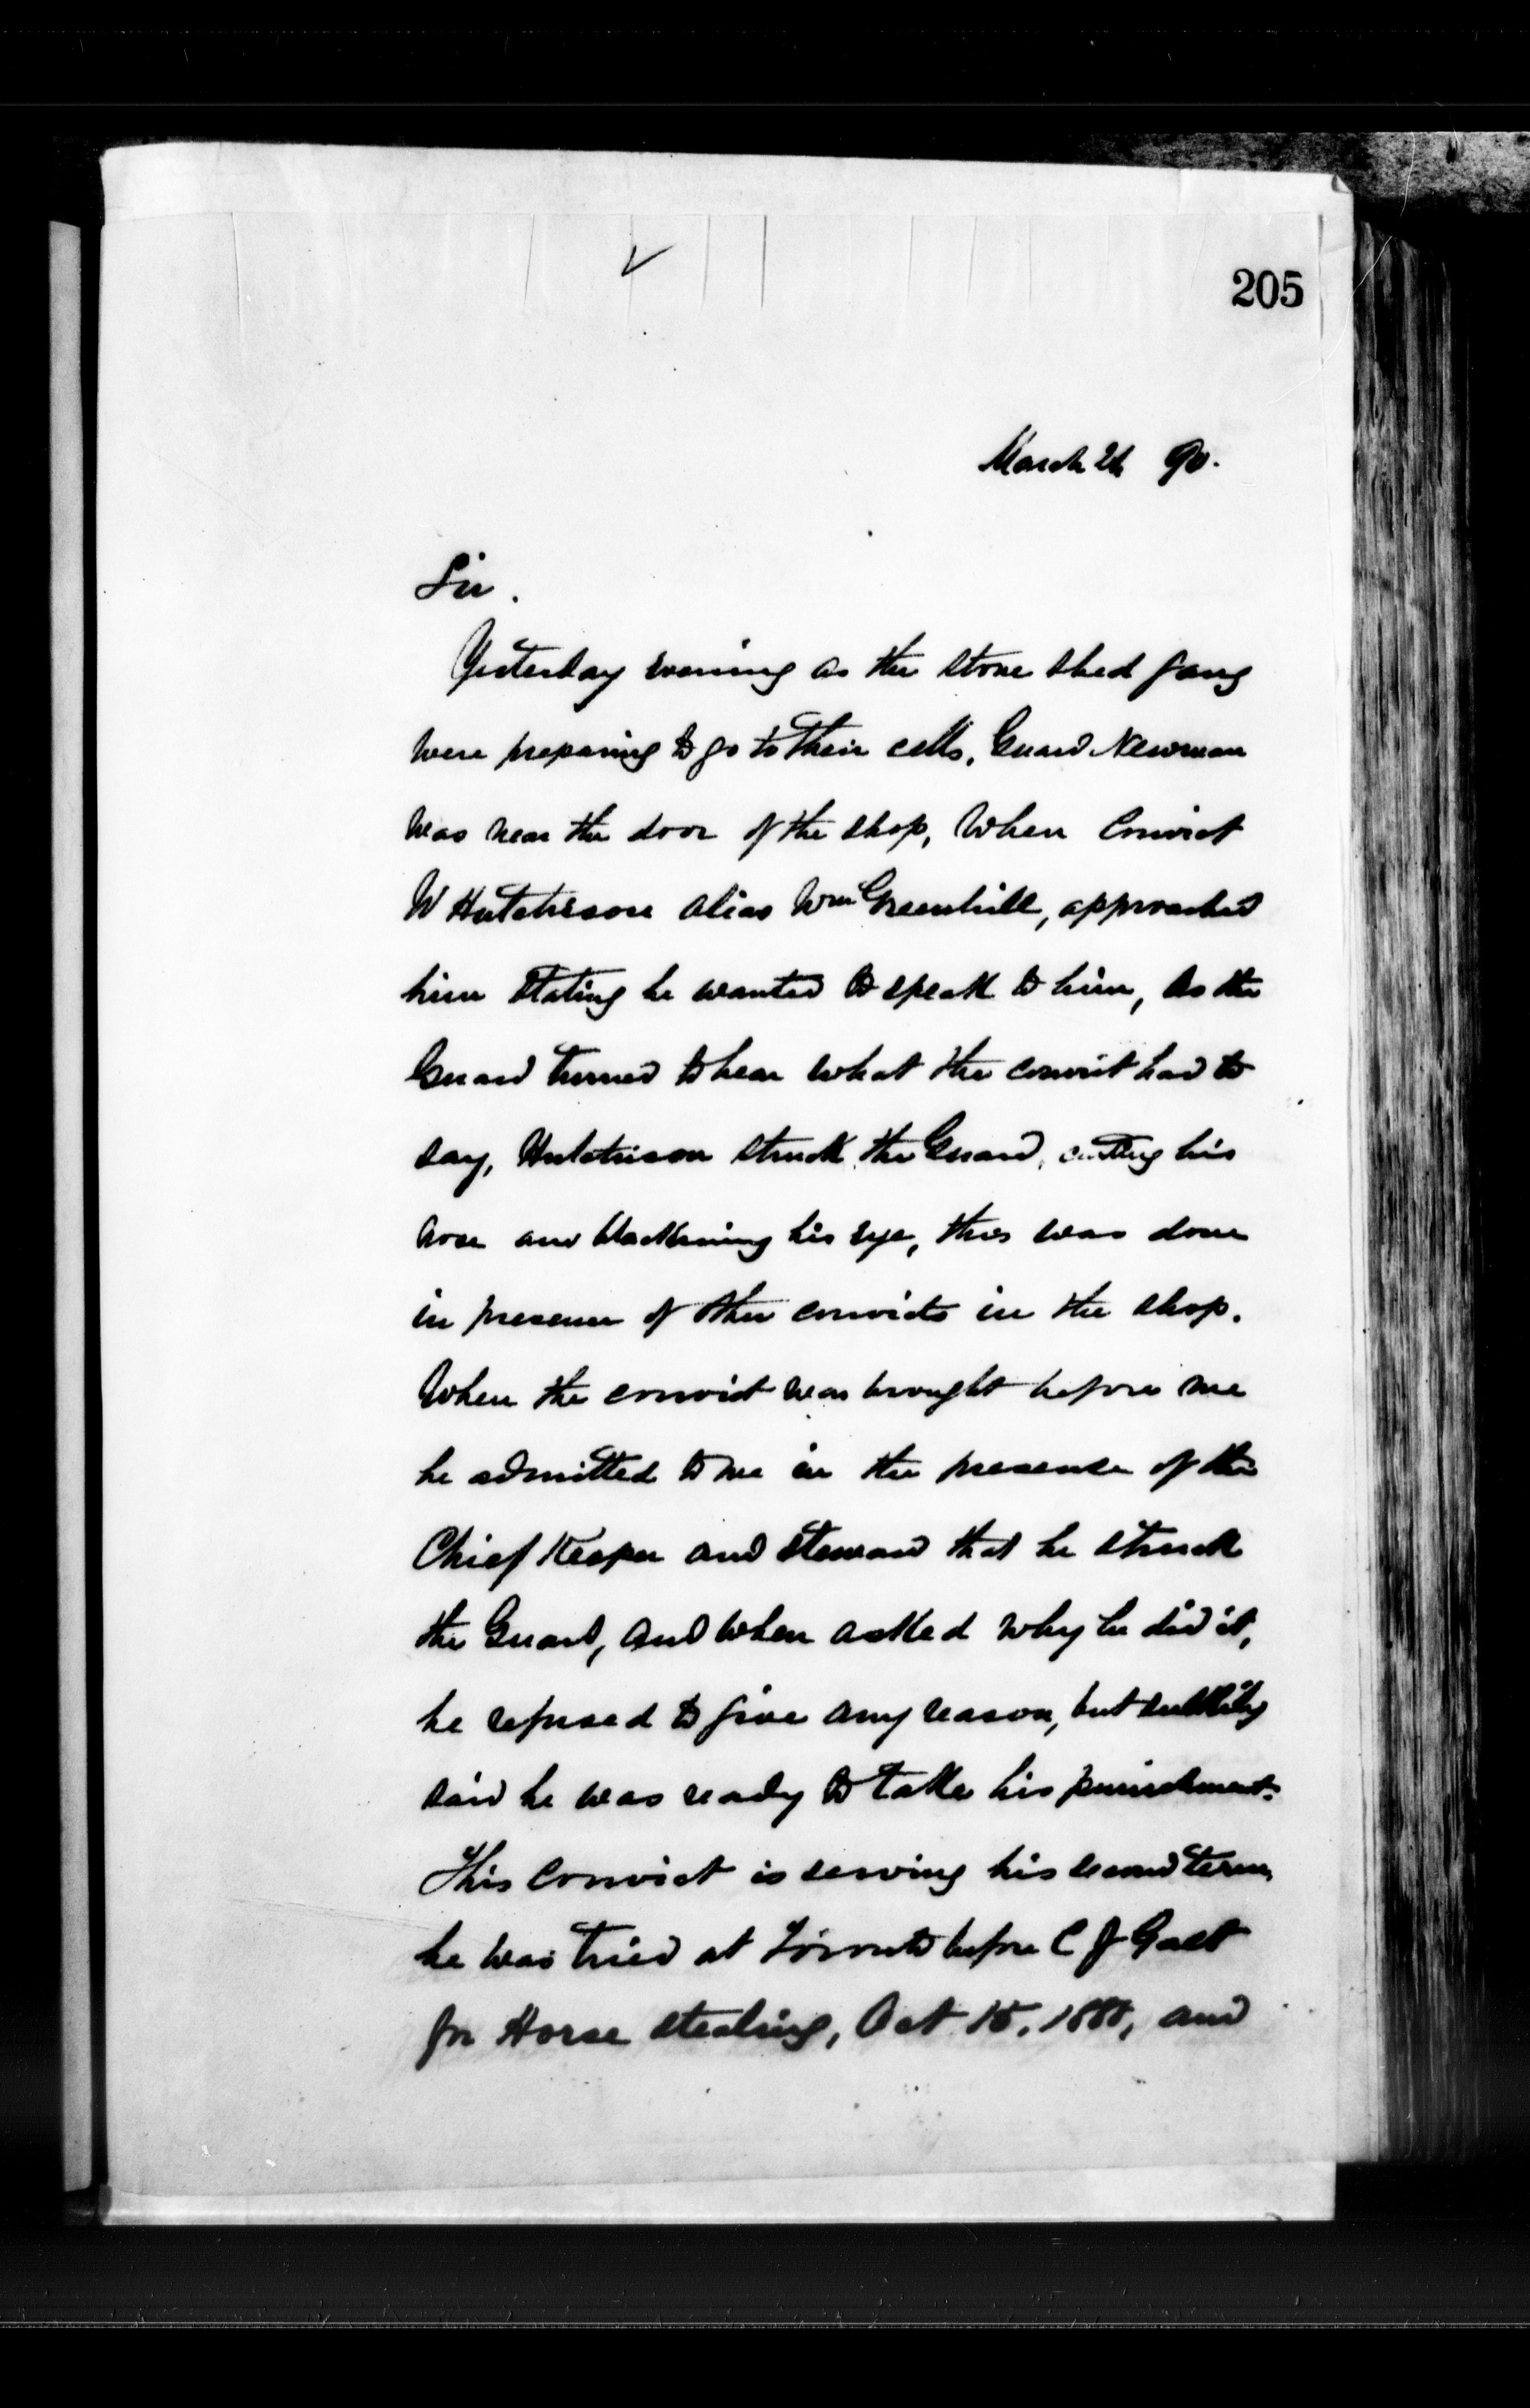 205
March 26 90.
Sir.
Yesterday evening as the stone shed gang
were preparing to go to their cells, Guard Newman
was near the door of the shop, When Convict
W Hutchison alias Wm Greenhill, approached
him stating he wanted to speak to him, As the
Guard turned to hear what the convict had to
say, Hutchison struck the Guard, cutting his
nose and blackening his eye, this was done
in presence of other convicts in the shop.
When the convict was brought before me
he admitted to me in the presence of the
Chief Keeper and Steward that he struck
the Guard, and when asked why he did it,
he refused to give any reason, but sulkily
said he was ready to take his punishment.
This Convict is serving his second term,
he was tried at Toronto before C J Galt
for Horse stealing, Oct 15, 1888, and